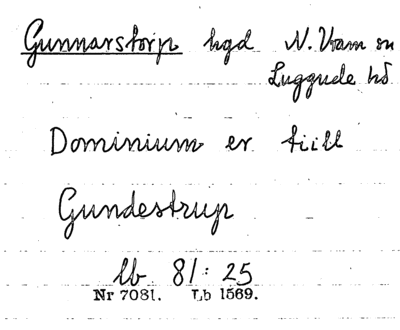 Gunnarstorp hgd N. Vram sn
Luggude hd
Dominium er tiill
Gundestrup
lb 81: 25
Nr 7081. Lb 1569.